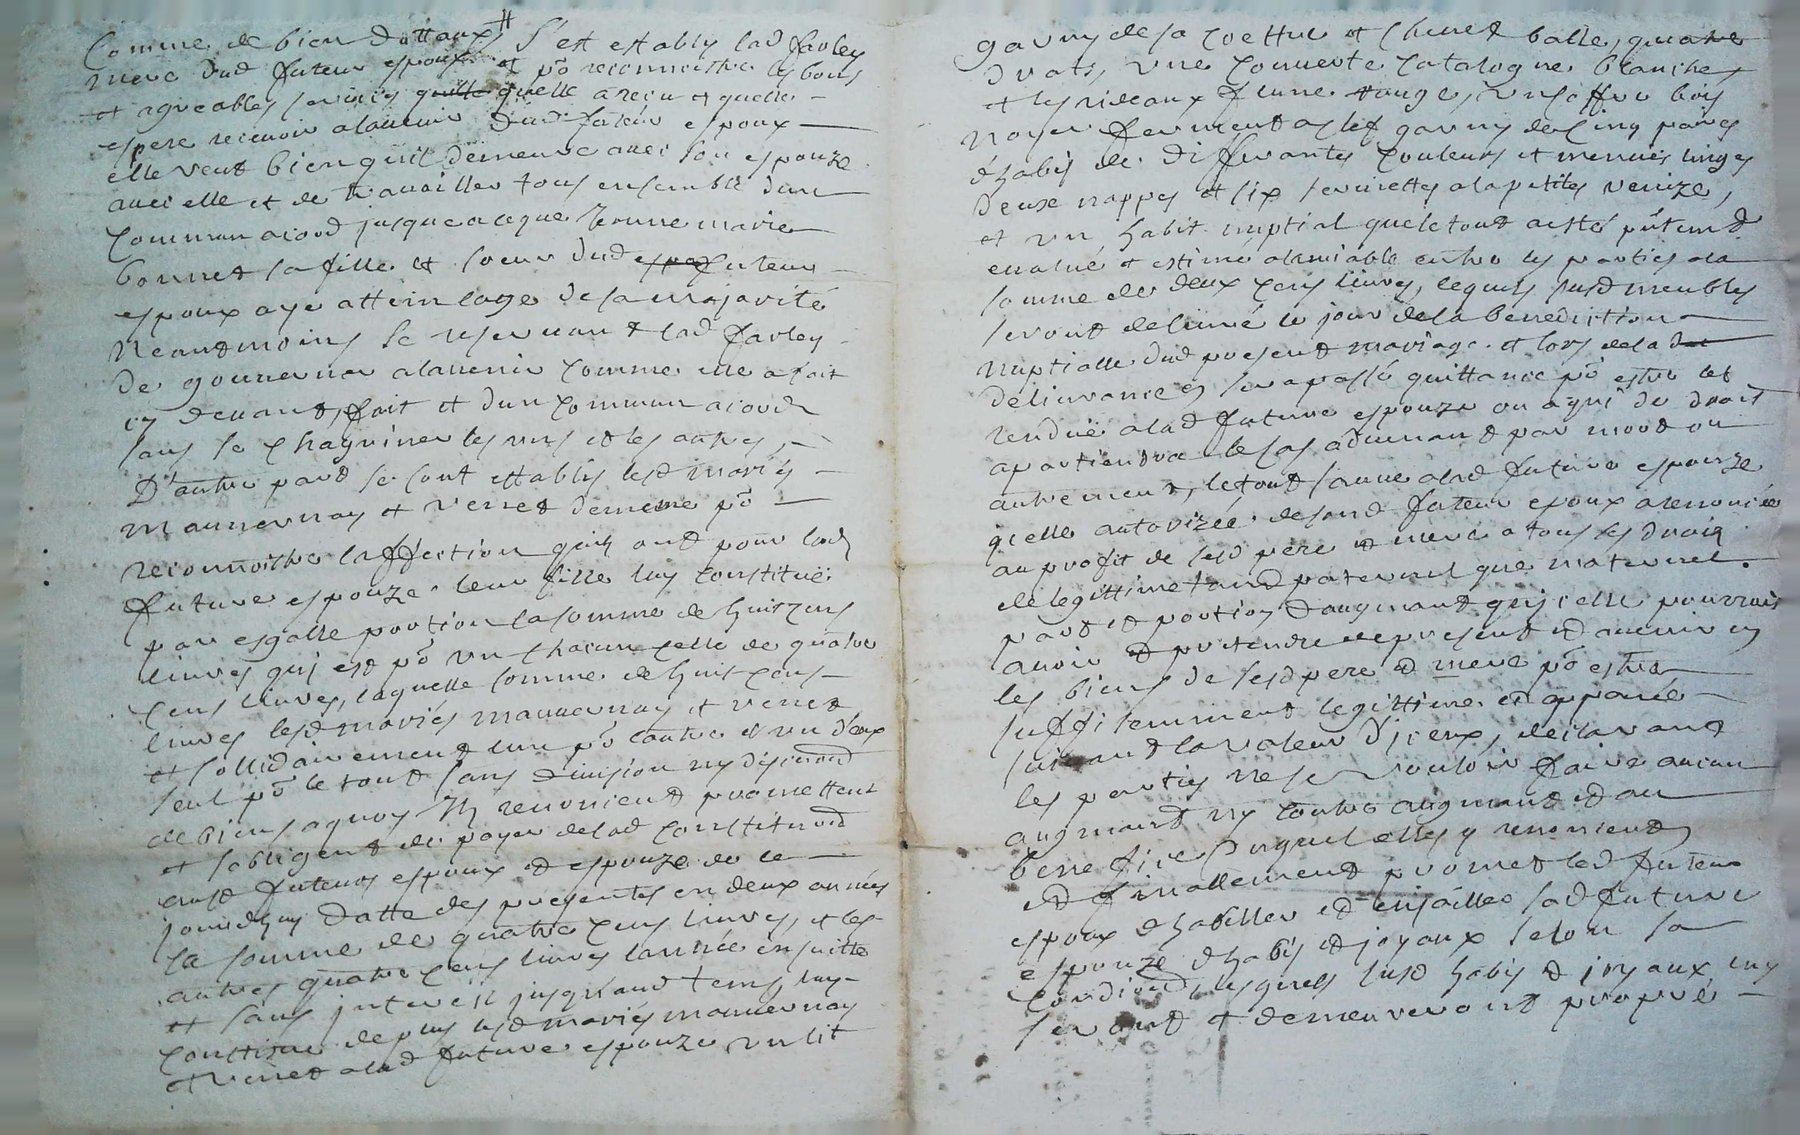 Comme de bien dottaux # S'est establÿ lad farley
mere dud futeur espoux et po͞ reconnoistre les bons
et agreables services quelle quelle a recu et quelle
espere recevoir aladvenir dud futeur espoux
elle veut bien quil demeure avec son espouze
avec elle et de travailler tous ensemble dun
commun acord jusque a ce que Jeanne marie
bonnet sa fille et soeur dud espo futeur
espoux aye attein lage de sa majorité
Neantmoins se reservant lad farley
de gouverner aladvenir comme elle a fait
cy devant, fait et dun commun acord
sans se chagriner les uns et les autres,
D'autre pard se sont establis lesd mariés
Mannevnay et Verret demesme po͞
reconnoistre laffection quils ont pour lad
future espouze leur fille luy constitue
par esgalle portion la somme de huit zens
livres qui est po͞ un chacun celle de quatre
cens livres, laquelle somme de huit cens
livres lesd mariés mannevnay et verret
et sollidairement lun po͞ lautre et un deux
seul po͞ le tout sans division ny discution
de biens aquoy Ils renoncient promettent
et sobligent de payer delad constitution
ausd futeurs espoux et espouze de ce
jourdhuy datte des presentes en deux années
la somme de quatre cens livres, et les
autres quatre cens livres lannée ensuitte
et sans interest jusquaud tems, luy
constitue de plus lesd mariés mannevnay
et Verret alad future espouze un lit
garny de sa coettre et chevet balle, quatre
drats, une couverte catalogne blanche
et les rideaux leine rouge, un coffre bois
noyer fermant a clef garny de cinq paires
d'habis de differantes couleurs et menues linges
deux nappes et six serviettes a la petite venize,
et un habit nuptial que le tout a esté putemt
evalué et estimé alamiable entre les parties a la
somme de deux cens livres, lequels susd meubles
seront delivré le jour de la benediction
nuptialle dud present mariage et lors de la d
delivrance en sera passé quittance po͞ estre le
rendue a lad future espouze ou a qui de droit
apartiendra le cas advenant par mort ou
autrement, le tout sauve a lad future espouze
qielle autorizée desond futeur epoux a renoncée
au profit de sesd pere et mere a tous les droits
de legittime tand paternel que maternel.
part et portion daugmant quicelle pourrait
avoir et pretendre de present et advenir en
les biens de sesd pere et mere po͞ estre
suffisemment legittimee et apanée
suivant la valeur d'iceux, declarant
les parties ne se vouloir faire aucun
augmant ny contre augmant et au
benefice duquel elles y renoncient
et finallement promet led futeur
espoux dhabiller et enjoailler sad future
espouze dhabis et joyaux selon sa
condition, lesquels susd habis et joyaux luy
seront et demeureront propre